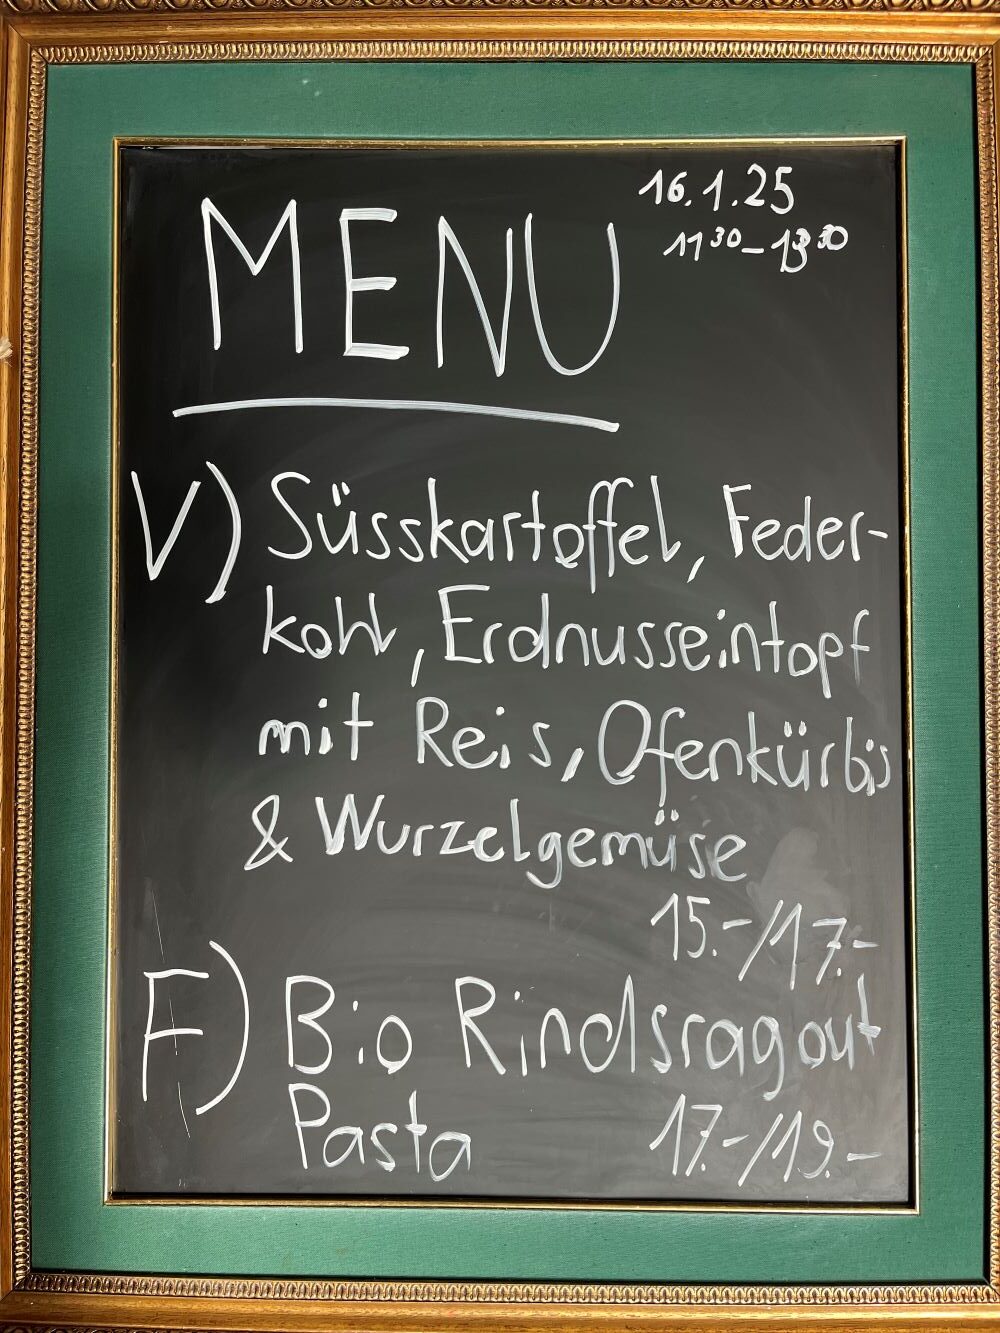 MENU
16.1.25
11³⁰-13³⁰
V) Süsskartoffel, Feder-
kohl, Erdnusseintopf
mit Reis, Ofenkürbis
& Wurzelgemüse
15.-/17.-
F) Bio Rindsragout
Pasta 17.-/19.-